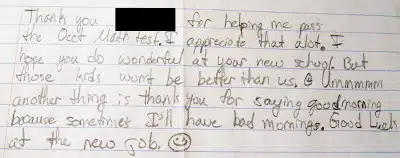 Thank you for helping me pass
the Occt Math test. I appreciate that alot. I
hope you do wonderful at your new school. But
those kids won't be better than us. Ummmmm
another thing is thank you for saying goodmorning
because sometimes I'll have bad mornings. Good Luck
at the new job.